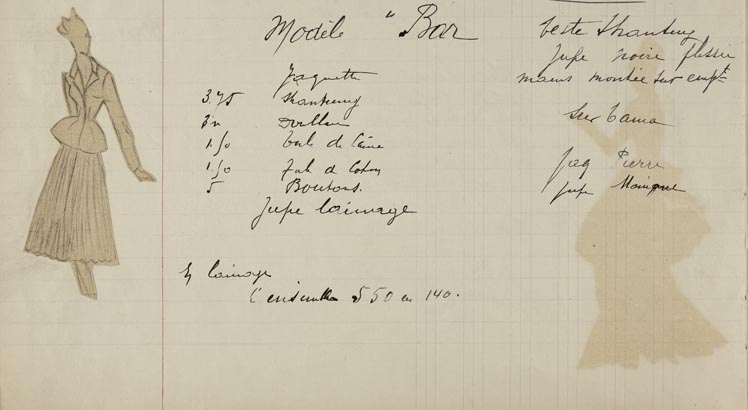 Modèle "Bar
Jaquette
3.75 Shantung
3m Doublure
1.50 toile de laine
1.50 Toile de Coton
5 Boutons.
Jupe lainage
en lainage
l'ensemble 5 50 en 140.
Veste Shantung
Jupe noire plissée
mains montée sur empt
sur Tama
Jaq Pierre
Jupe Monique